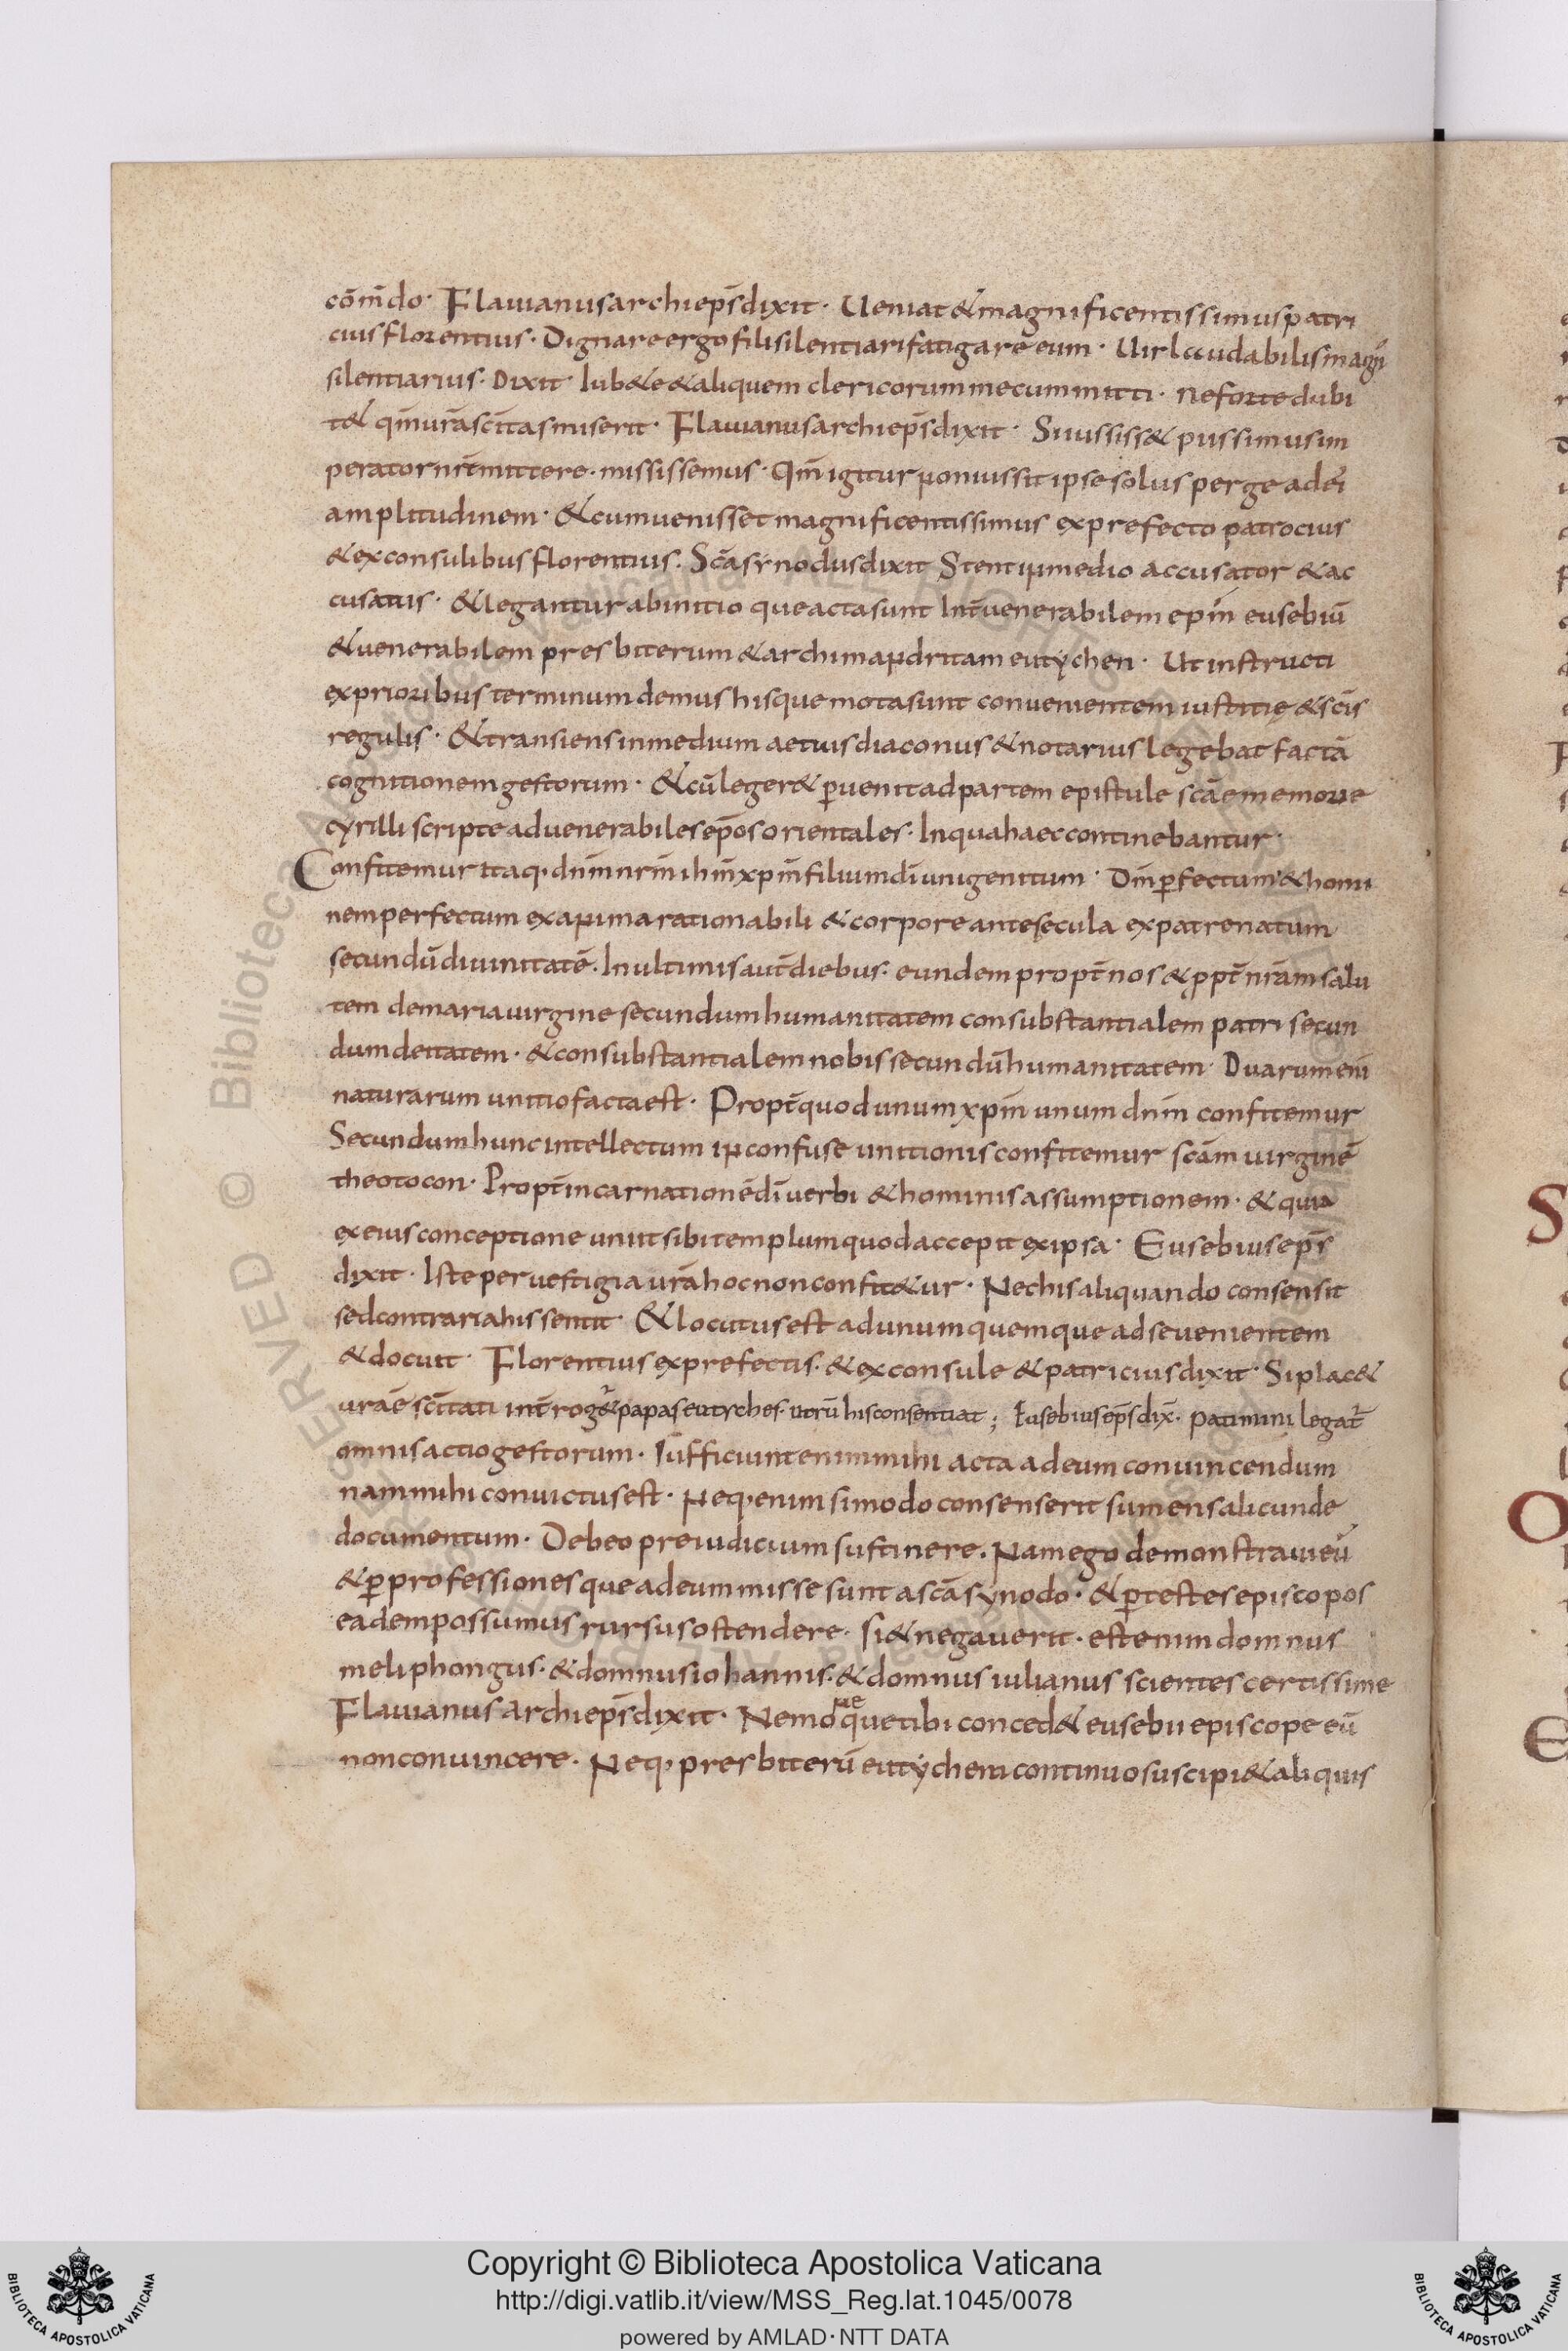 cōm̄do· Flauianus archiep̄s dixit· Ueniat & magnificentissimus patri
cius florentius· Dignare ergo fili silentiari fatigare eum· Uir laudabilis magn̄
silentiarius· Dixit· Iub&e & aliquem clericorum mecum mitti· ne forte dubi
t& qm̄ ur̄a sc̄itas miserit· Flauianus archiep̄s dixit· Si iussiss& piissimus im
perator nr̄m mittere· misissemus· Qm̄ igitur non iussit ipse solus perge ad ei
amplitudinem· & cum uenisset magnificentissimus ex prefecto patrocius
& ex consulibus florentius· Sc̄a synodus dixit Stent in medio accusator & ac
cusatus· & legantur ab initio que acta sunt Int̄ uenerabilem ep̄m eusebiū
& uenerabilem presbiterum & archimandritam eutychen· Ut instructi
ex prioribus terminum demus his que mota sunt conuenientem iustitię & sc̄is
regulis· & transiens in medium aetius diaconus & notarius legebat factā
cognitionem gestorum· & cū leger& ꝑuenit ad partem epistule sc̄ae memorie
cyrilli scripte ad uenerabiles ep̄os orientales· In qua haec continebantur·
Confitemur itaq· dn̄m nr̄m ih̄m xp̄m filium dī unigenitum· Dm̄ ꝑfectum & homi
nem perfectum ex anima rationabili & corpore ante secula ex patre natum
secundū diuinitatē· In ultimis aut̄ diebus· eundem propt̄ nos & ꝓpt̄ nr̄am salu
tem de maria uirgine secundum humanitatem consubstantialem patri secun
dum deitatem· & consubstantialem nobis secundū humanitatem· Duarum eni
naturarum unitio facta est· Propt̄ quod unum xp̄m unum dn̄m confitemur
Secundum hunc intellectum inconfuse unitionis confitemur sc̄am uirginē
theotocon· Propt̄ incarnationē dī uerbi & hominis assumptionem· & quia
ex eius conceptione uniit sibi templum quod accepit ex ipsa· Eusebius ep̄s
dixit· Iste per uestigia ur̄a hoc non confit&ur· Nec his aliquando consensit
sed contraria his sentit· & locutus est ad unumquemque ad se uenientem
& docuit· Florentius ex prefectis· & ex consule & patricius dixit· Si plac&
ur̄ae sc̄itati int̄rog&r papas eutyches· utrū his consentiat; Eusebius ep̄s dix̄· patimini legat̄
omnis actio gestorum· Sufficiunt enim mihi acta ad eum conuincendum
nam mihi conuictus est· Neq· enim si modo consenserit sumens alicunde
documentum· Debeo preiudicium sustinere· Nam ego demonstraui eū
& ꝑ professiones que ad eum misse sunt a sc̄a synodo· & ꝑ testes episcopos
eadem possumus rursus ostendere· Si & negauerit· est enim domnus
meliphongus· & domnus iohannis· & domnus iulianus scientes certissime
Flauianus archiep̄s dixit· Nemo que tibi conced& eusebii episcope eū
non conuincere· Neq· presbiterū eutychem continuo suscipi& aliquis
Copyright © Biblioteca Apostolica Vaticana
http://digi.vatlib.it/view/MSS_Reg.lat.1045/0078
powered by AMLAD·NTT DATA